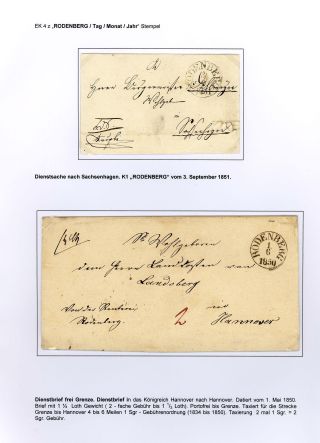 EK 4 z „RODENBERG / Tag / Monat / Jahr' Stempel
RODENBERG
Herrn Bürgermeister
Wohlgeb
Sachsenhagen
Dienstsache nach Sachsenhagen. K1 „RODENBERG" vom 3. September 1851.
RODENBERG
1
6
1850
Sr Wohlgeboren
dem Herrn Landdrosten von
Landsberg
Von der Renterei in
Rodenberg. 2 Hannover
Dienstbrief frei Grenze. Dienstbrief in das Königreich Hannover nach Hannover. Datiert vom 1. Mai 1850.
Brief mit 1 ¼ Loth Gewicht ( 2 - feche Gebühr bis 1 ½ Loth). Portofrei bis Grenze. Taxiert für die Strecke
Grenze bis Hannover 4 bis 6 Meilen 1 Sgr - Gebührenordnung (1834 bis 1850). Taxierung 2 mal 1 Sgr = 2
Sgr. Gebühr.